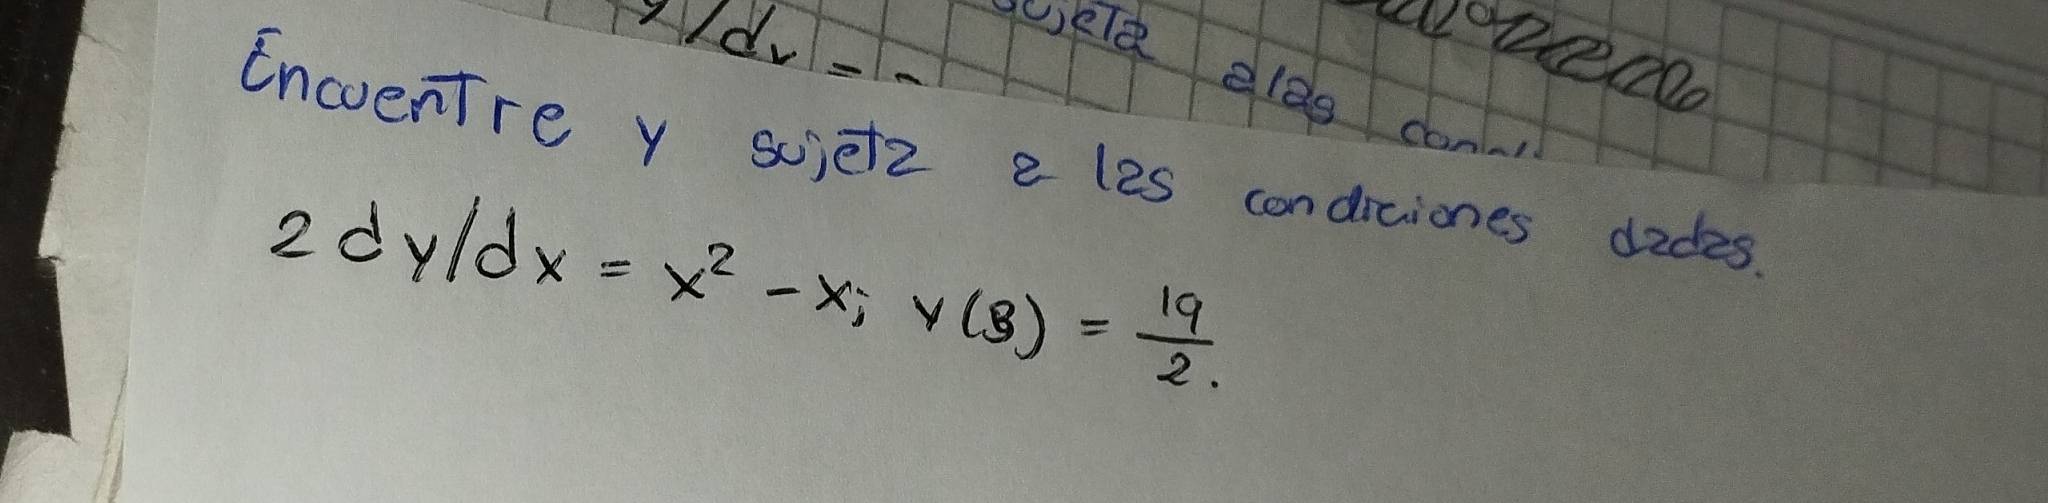 y/dx = -
sujeta a las
Encuentre y sujeta a las condiciones dadas.
2 dy/dx = x² - x; y(3) = 19/2.